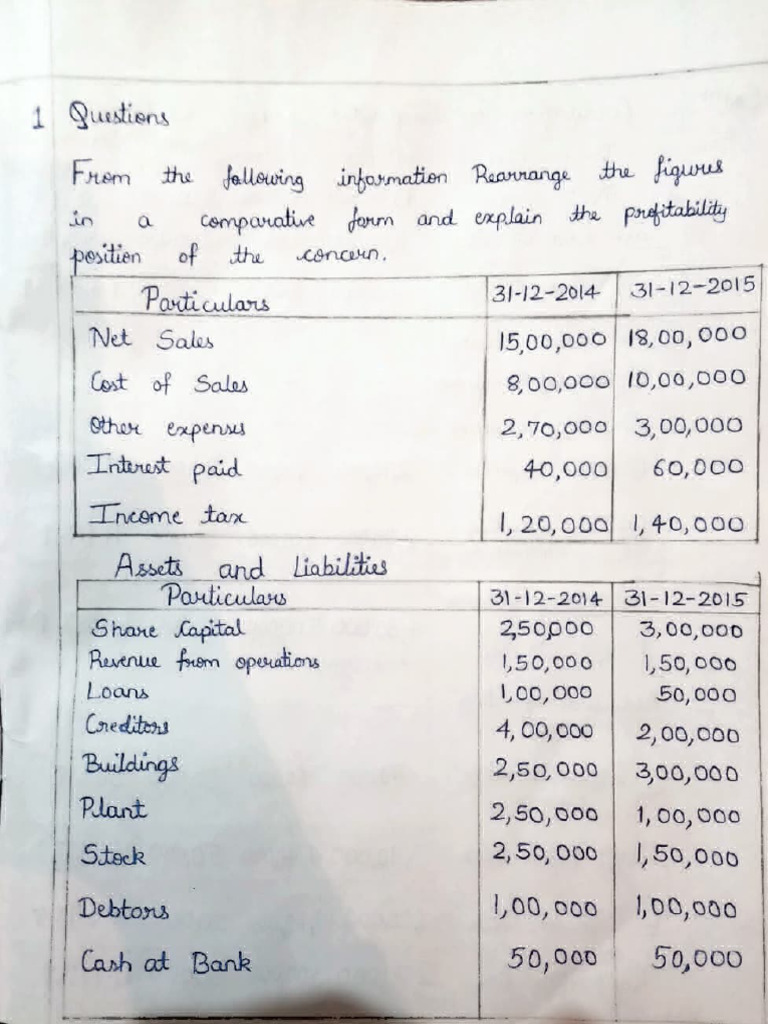 1 Questions
From the following information Rearrange the figures
in a comparative form and explain the profitability
position of the concern.
Particulars 31-12-2014 31-12-2015
Net Sales 15,00,000 18,00,000
Cost of Sales 8,00,000 10,00,000
Other expenses 2,70,000 3,00,000
Interest paid 40,000 60,000
Income tax 1,20,000 1,40,000
Assets and Liabilities
Particulars 31-12-2014 31-12-2015
Share Capital 2,50,000 3,00,000
Revenue from operations 1,50,000 1,50,000
Loans 1,00,000 50,000
Creditors 4,00,000 2,00,000
Buildings 2,50,000 3,00,000
Plant 2,50,000 1,00,000
Stock 2,50,000 1,50,000
Debtors 1,00,000 1,00,000
Cash at Bank 50,000 50,000